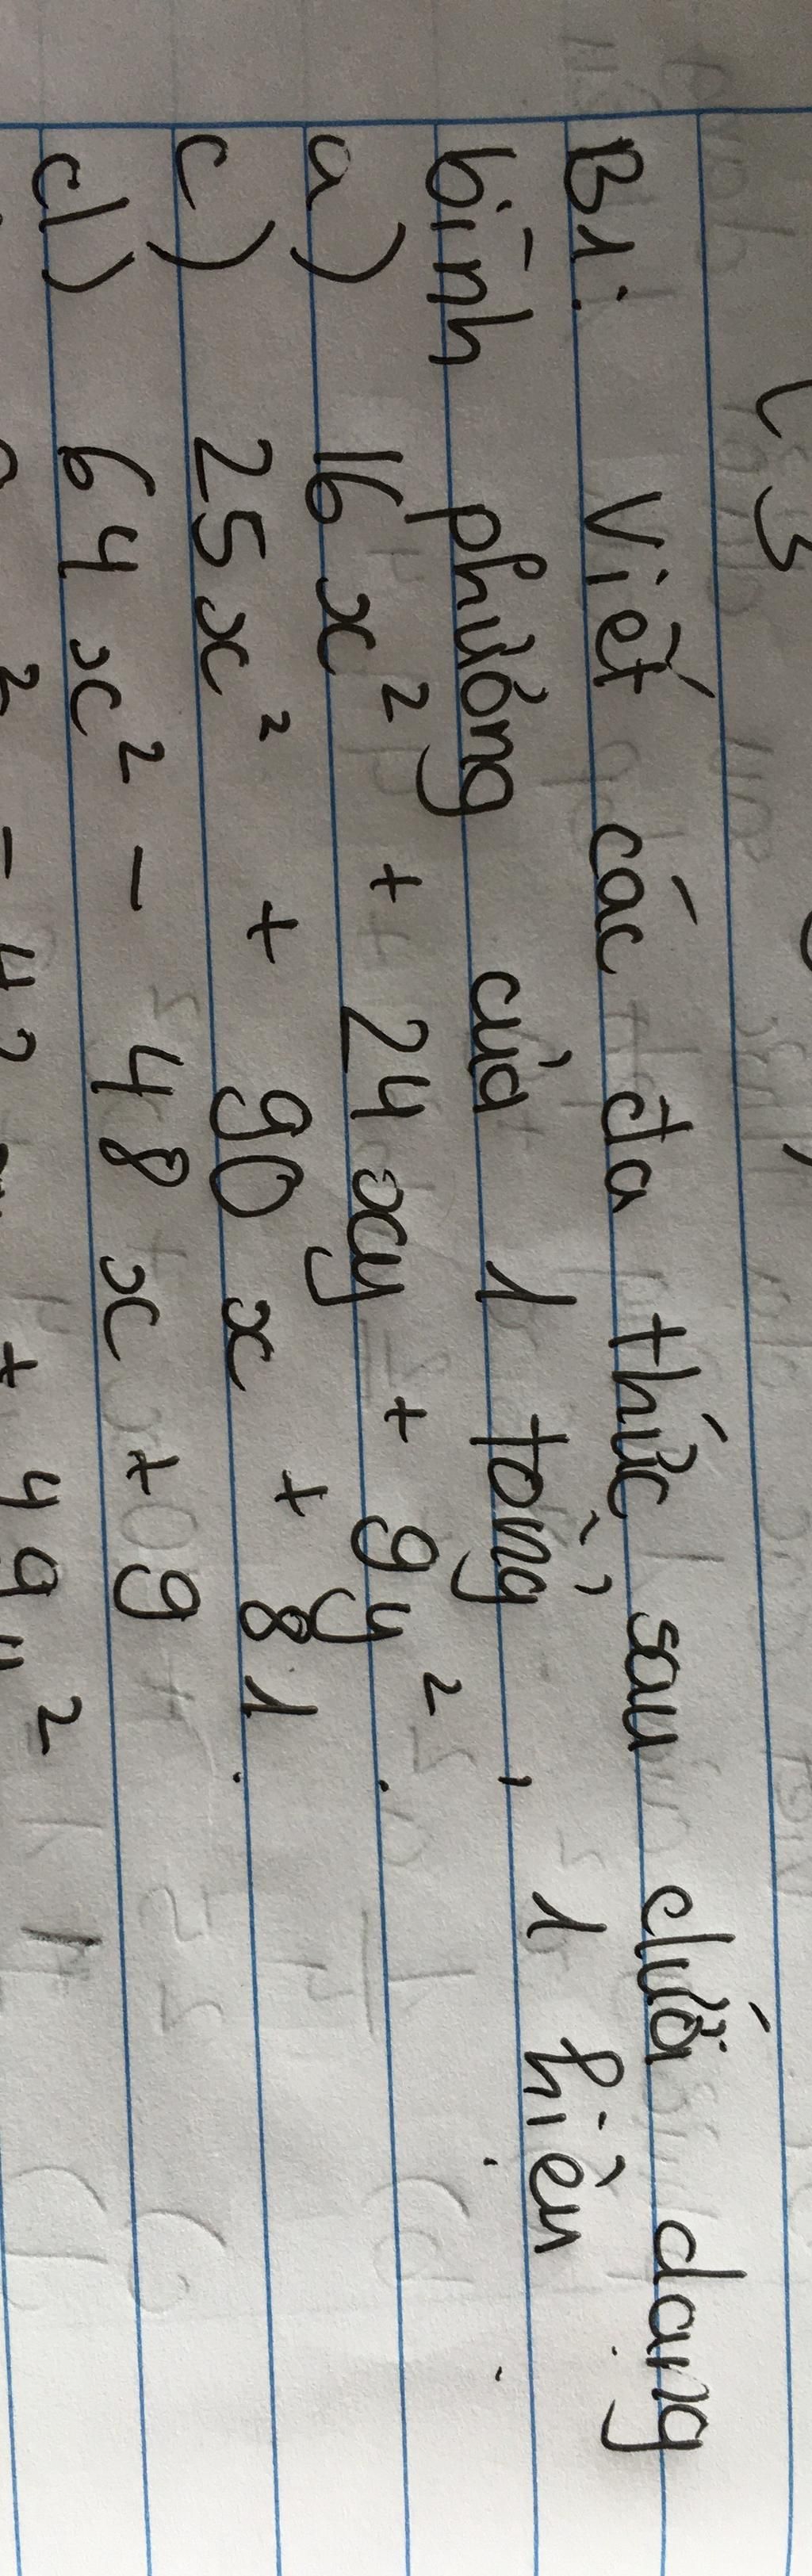 B1: Viết các đa thức sau dưới dạng
bình phương của 1 tổng, 1 hiệu
a) 16x² + 24xy + 9y².
c) 25x² + 90x + 81.
d) 64x² - 48x + 9